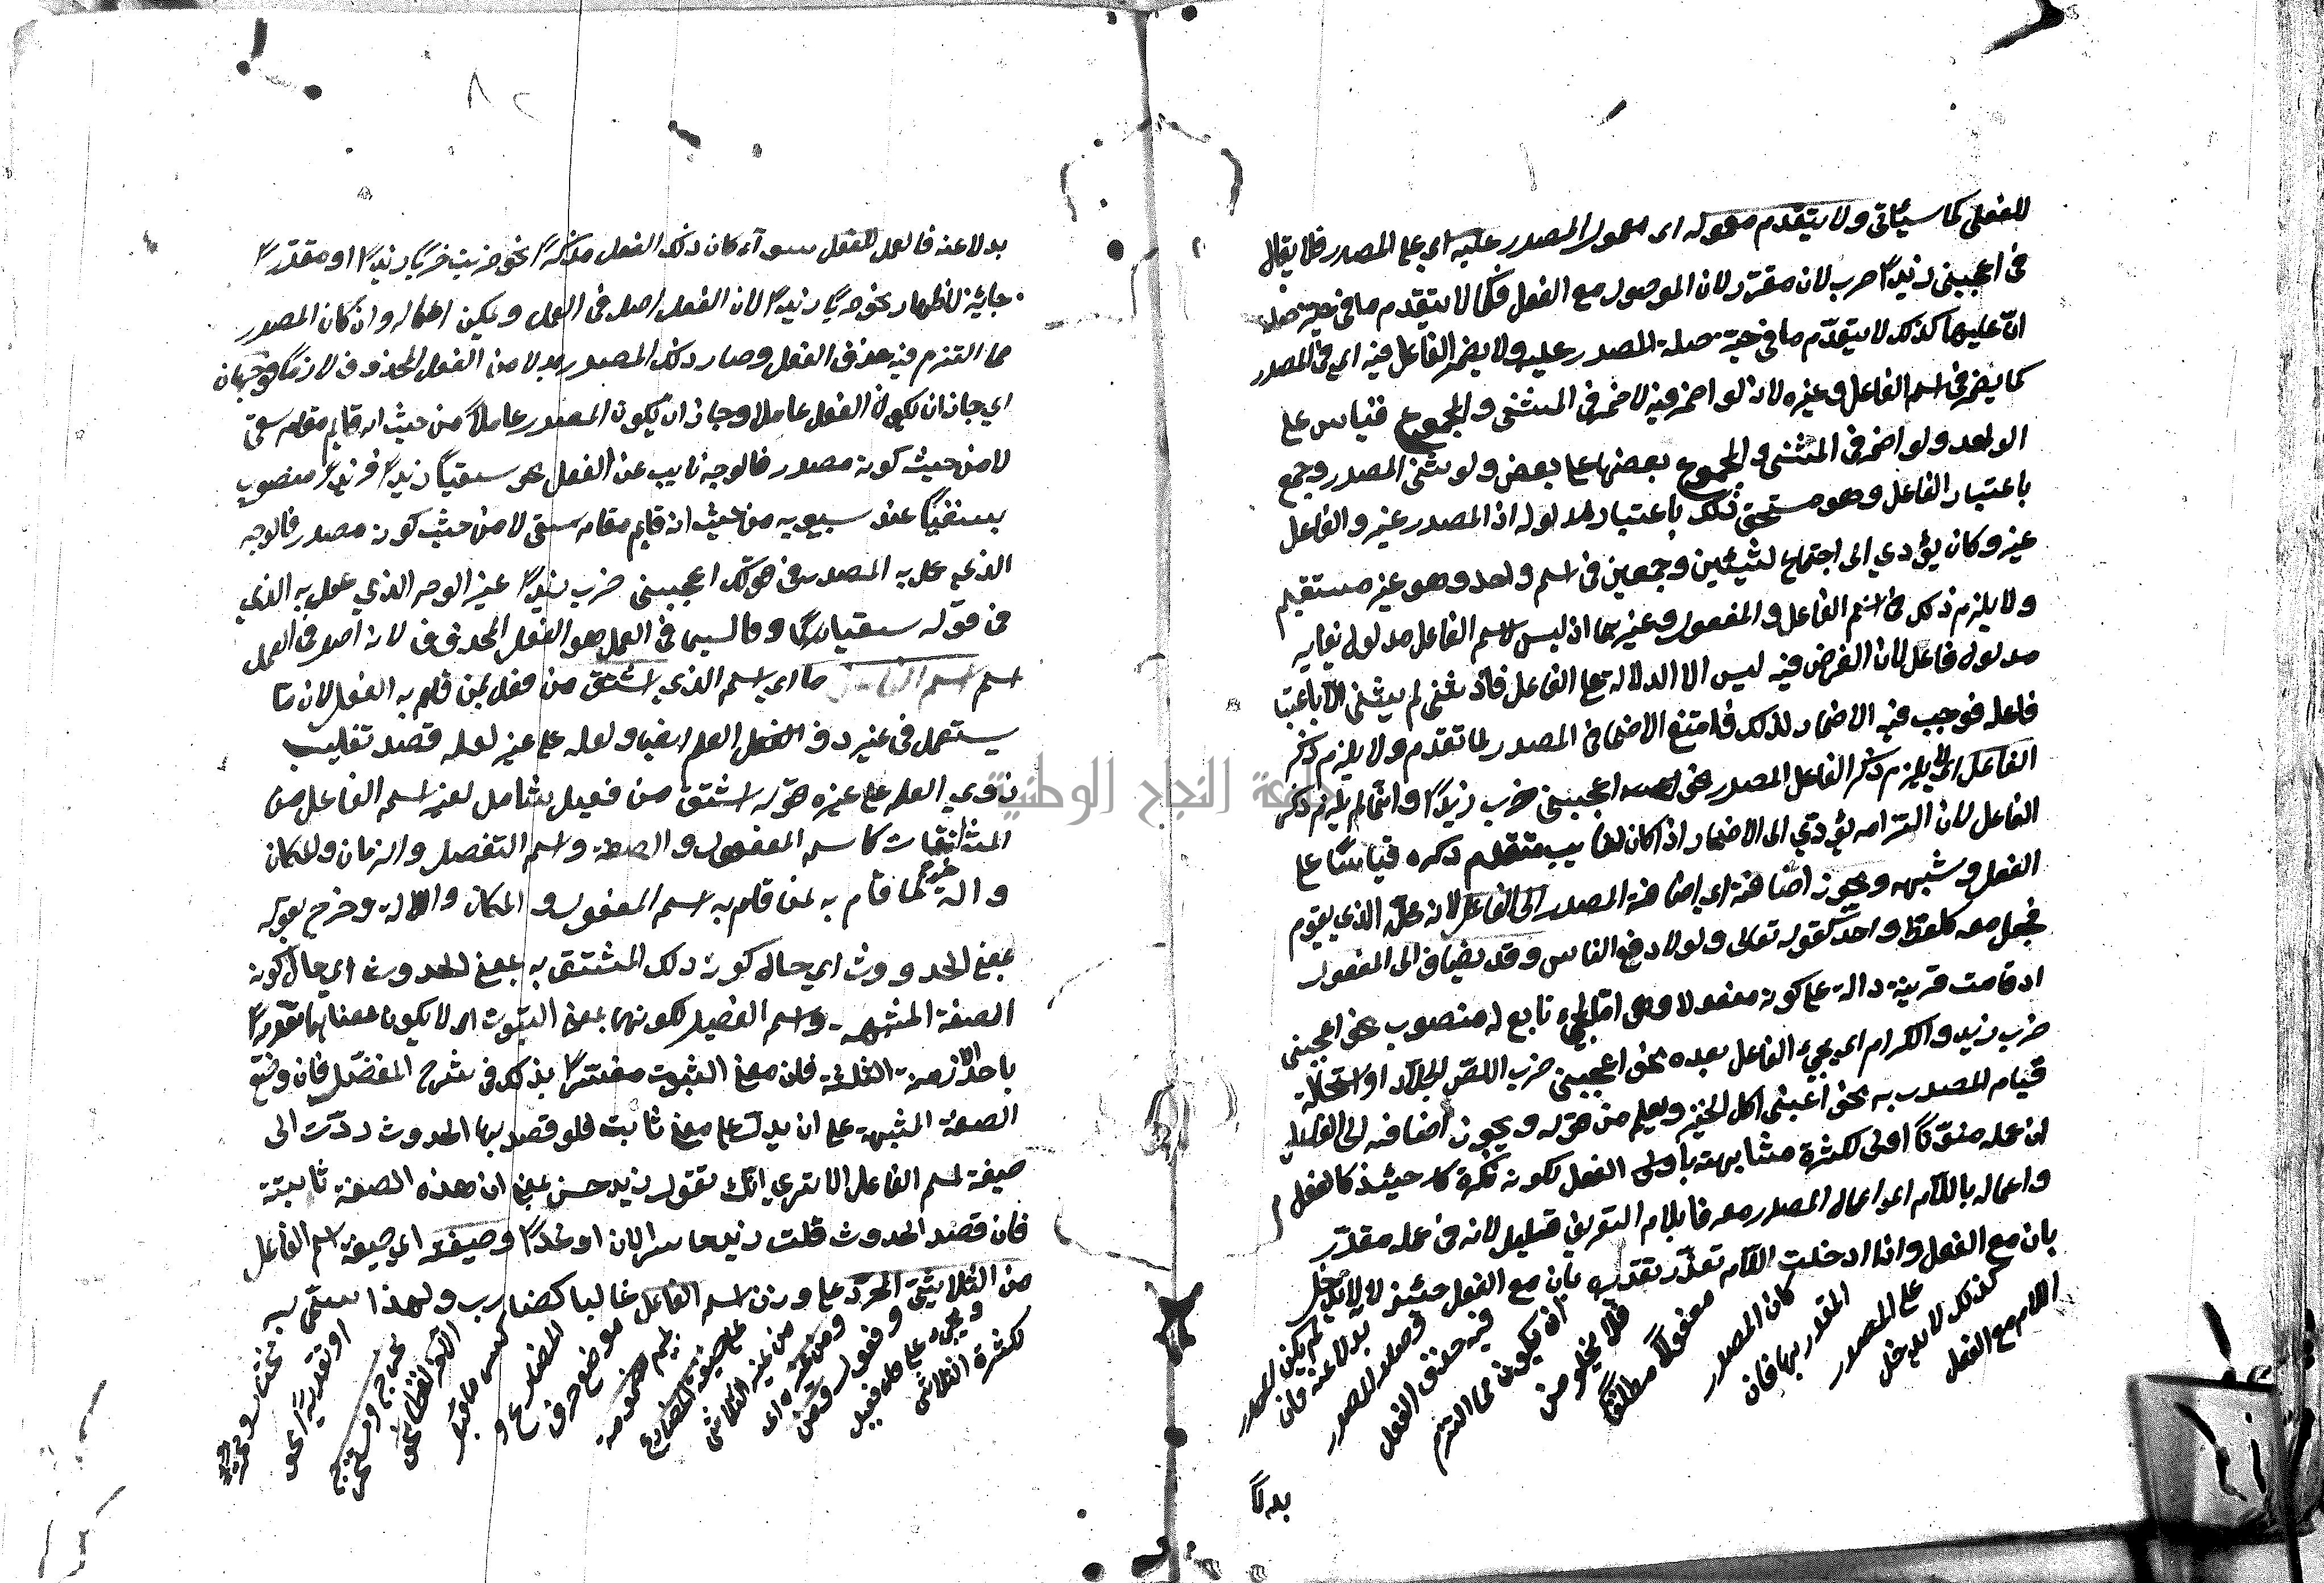 للفعل كما سيأتى ولا يتقدم معموله اى معمول المصدر عليه اي على المصدر فلا يقال
فى اعجبنى زيدًا ضرب لانه مقدّر لان الموصول مع الفعل فكما لا يتقدم ما فى حيّز صلة
انّ عليها كذلك لا يتقدّم ما فى حيّز صلة المصدر عليه ولا يضمر الفاعل فيه اي فى المصدر
كما يضمر فى اسم الفاعل وغيره لانه لو اضمر فيه لاضمر فى المثنى والمجموع قياس على
الواحد ولو اضمر فى المثنى والمجموع بعضها على بعض ولو ثنى المصدر وجمع
باعتبار الفاعل وهو مستحق ذلك باعتبار مدلوله اذ المصدر غير والفاعل
غير وكان يؤدي الى اجتماع تثنيتين وجمعين فى اسم واحد وهو غير مستقيم
ولا يلزم ذلك فى اسم الفاعل والمفعول وغيرهما اذ ليس لاسم الفاعل مدلول يغاير
مدلول فاعل لان الغرض فيه ليس الا الدلالة على الفاعل فاذ ثنى لم يثنى الا باعتبا
فاعله فوجب فيه الاضمار لذلك فامتنع الاضما فى المصدر لما تقدم ولا يلزم ذكر
الفاعل اي لا يلزم ذكر الفاعل المصدر نحو اعجبنى ضرب زيدًا وانما لم يلزم ذكر
الفاعل لان التزامه يؤدّي الى الاضمار اذا كان لغايب متقدم ذكره قياسًا على
الفعل وشبهه ويجوز اضافته اي اضافة المصدر الى الفاعل لانه محلّ الذي يقوم
فجعل معه كلفظ واحد كقوله تعالى ولولا دفع الناس وقد يضاف الى المفعول
اذ قامت قرينة دالة على كونه مفعولا وهى امّا مجيء تابع له منصوب نحو اعجبنى
ضرب زيد والكرام اي مجيء الفاعل بعده نحو اعجبنى ضرب اللصّ الجلاّد او استحالة
قيام المصدر به نحو اعجبنى اكل الخبز ويعلم من قوله ويجوز اضافته الى الفاعل
ان عمله منوّنًا اولى لكثرة مشابهته باولى الفعل لكونه نكرة كا حينئذ كالفعل
واعماله باللام اى اعمال المصدر معرفا بلام التعريف قليل لانه فى عمله مقدّر
بان مع الفعل واذا ادخلت اللام تعذّر تقديره بان مع الفعل حينئذ لانه لا يدخل
اللام مع الفعل
كذلك لا يدخل
على المصدر
المقدر بها فان
كان المصدر
مفعولاً مطلقًا
فلا يخلو من
ان يكون مما التزم
فيه حذف الفعل
وصار المصدر
بدلا عنه فان
لم يكن المصدر
بدلاً
٨٢
بدلا عنه فالعمل للفعل سوآء كان ذلك الفعل مذكرًا نحو ضربت ضربًا زيدًا او مقدّرًا
جايز الاظهار نحو ضربًا زيدًا لان الفعل اصل فى العمل ويمكن اعماله وان كان المصدر
مما التزم فيه حذف الفعل وصار ذلك المصدر بدلا من الفعل المحذوف لازمًا فوجهان
اي جاز ان يكون الفعل عاملا وجاز ان يكون المصدر عاملاً من حيث انه قايم مقام سقى
لا من حيث كونه مصدر فالوجه نايب عن الفعل نحو سقيًا زيدًا فزيدًا منصوب
بسقيًا عند سيبويه من حيث انه قايم مقام سقى لا من حيث كونه مصدر فالوجه
الذي عمل به المصدر فى قولك اعجبنى ضرب زيدًا غير الوجه الذي عمل به الذي
فى قوله سقيا زيدًا وقال السيرافى العمل هو الفعل المحذوف لانه اصل فى العمل
اسم اسم الفاعل ما اي اسم الذي اشتق من فعل لمن قام به الفعل لان ما
يستعمل فى غير ذوي العلم ايضا ولعله على غير لعله قصد تغليب
ذوي العلم على غيره قوله اشتق من فعيل يشامل لغير اسم الفاعل من
المشتقات كاسم المفعول والصفة واسم التفضيل والزمان والمكان
والة خرج لما قام به لمن قام به اسم المفعول والمكان والالة وخرج بقوله
بمعنى الحدووث اي حال كون ذلك المشتق به بمعنى الحدوث اي حال كونه
الصفة المشبهه واسم الفضيل لكونهما بمعنى الثبوت اى لا يكون معناهما مقيدًا
باحد الازمنة الثلثة فان معنى الثبوت مفسّرًا بذلك فى شرح المفصّل فان وضع
الصفة المشبهة على ان يدل على معنى ثابت فلو قصد بها الحدوث ردّت الى
صيغة اسم الفاعل الا ترى انك تقول زيد حسن بمعنى ان هذه الصفة ثابتة
فان قصد الحدوث قلت زيد حاسن الان او غدًا وصيغته اي صيغة اسم الفاعل
من الثلاثيّ المجرّد على وزن اسم الفاعل غالبا كضارب ولهذا سمّى به
لكثرة الثلاثى
ويجيء على فعيل
وفعول وفعل
ومن غيره اى
من غير الثلاثى
على صيغة المضارع
بميم مضمومة
موضع حرف
المضارع و
كسر ما قبل
الآخر لفظا نحو
مخرج ومستخرج
او تقديرًا نحو
مختار ومحمر